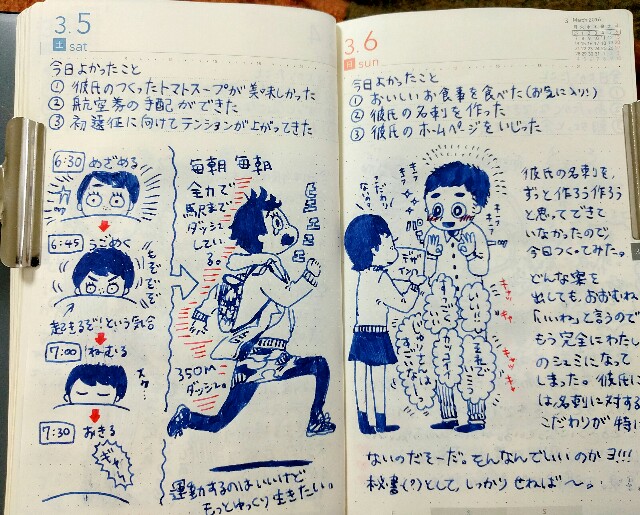 3.5
土 sat
今日よかったこと
① 彼氏のつくったトマトスープが美味しかった
② 航空券の手配ができた
③ 初遠征に向けてテンションが上がってきた
6:30 めざめる
6:45 うごめく
もぞもぞ
起きるぞ!という気合
7:00 ねむる
7:30 おきる
ギャー
毎朝毎朝
全力で
駅まで
ダッシュ
している。
350m
ダッシュ。
運動するのはいいけど
もっとゆっくり生きたい。
3.6
日 sun
March 2016
今日よかったこと
① おいしいお食事を食べた(お気に入り!)
② 彼氏の名刺を作った
③ 彼氏のホームページをいじった
彼氏の名刺を、
ずっと作ろう作ろう
と思ってできて
いなかったので
今日つくってみた。
どんな案を
出しても、おおむね
「いいね」と言うので
もう完全にわたし
のシュミになって
しまった。彼氏に
は、名刺に対する
こだわりが特に
ないのだそーだ。そんなんでいいのかヨ!!!
秘書(?)として、しっかりせねば〜。